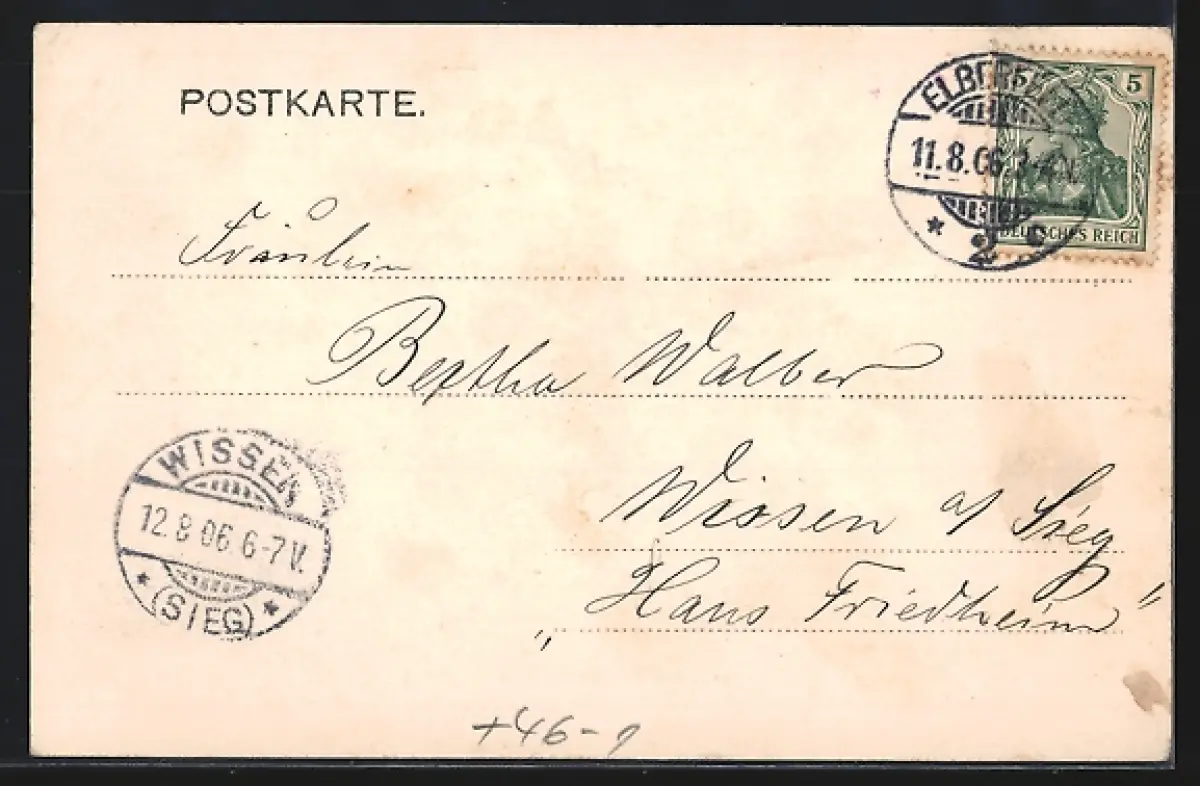 POSTKARTE.
ELBERFELD
5
11.8.06.3-4N.
* 2 c
DEUTSCHES REICH
Fräulein
Bertha Walber
Wissen a/Sieg
„Hans Friedheim"
WISSEN
12.8.06 6-7V.
* (SIEG) *
+46-9